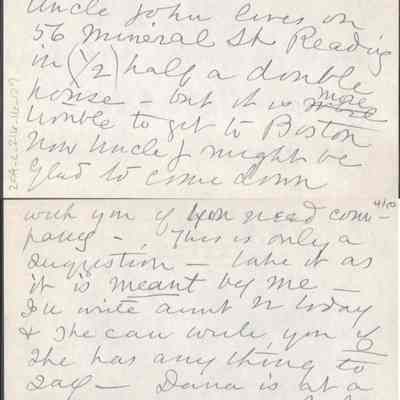 Uncle John lives on
56 Mineral St. Reading
in (1/2) half a double
house - but it is more more
trouble to get to Boston
Now Uncle J might be
glad to come down
4/10
with you if you need com-
pany -, This is only a
suggestion - take it as
it is meant by me -
I'll write aunt N today
& she can write you if
she has anything to
say - Dana is at a